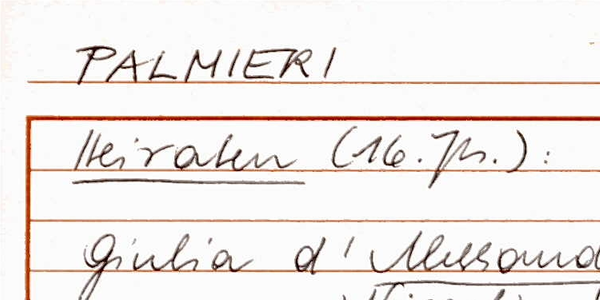 PALMIERI
Heiraten (16. Jh.):
Giulia d'Alessand